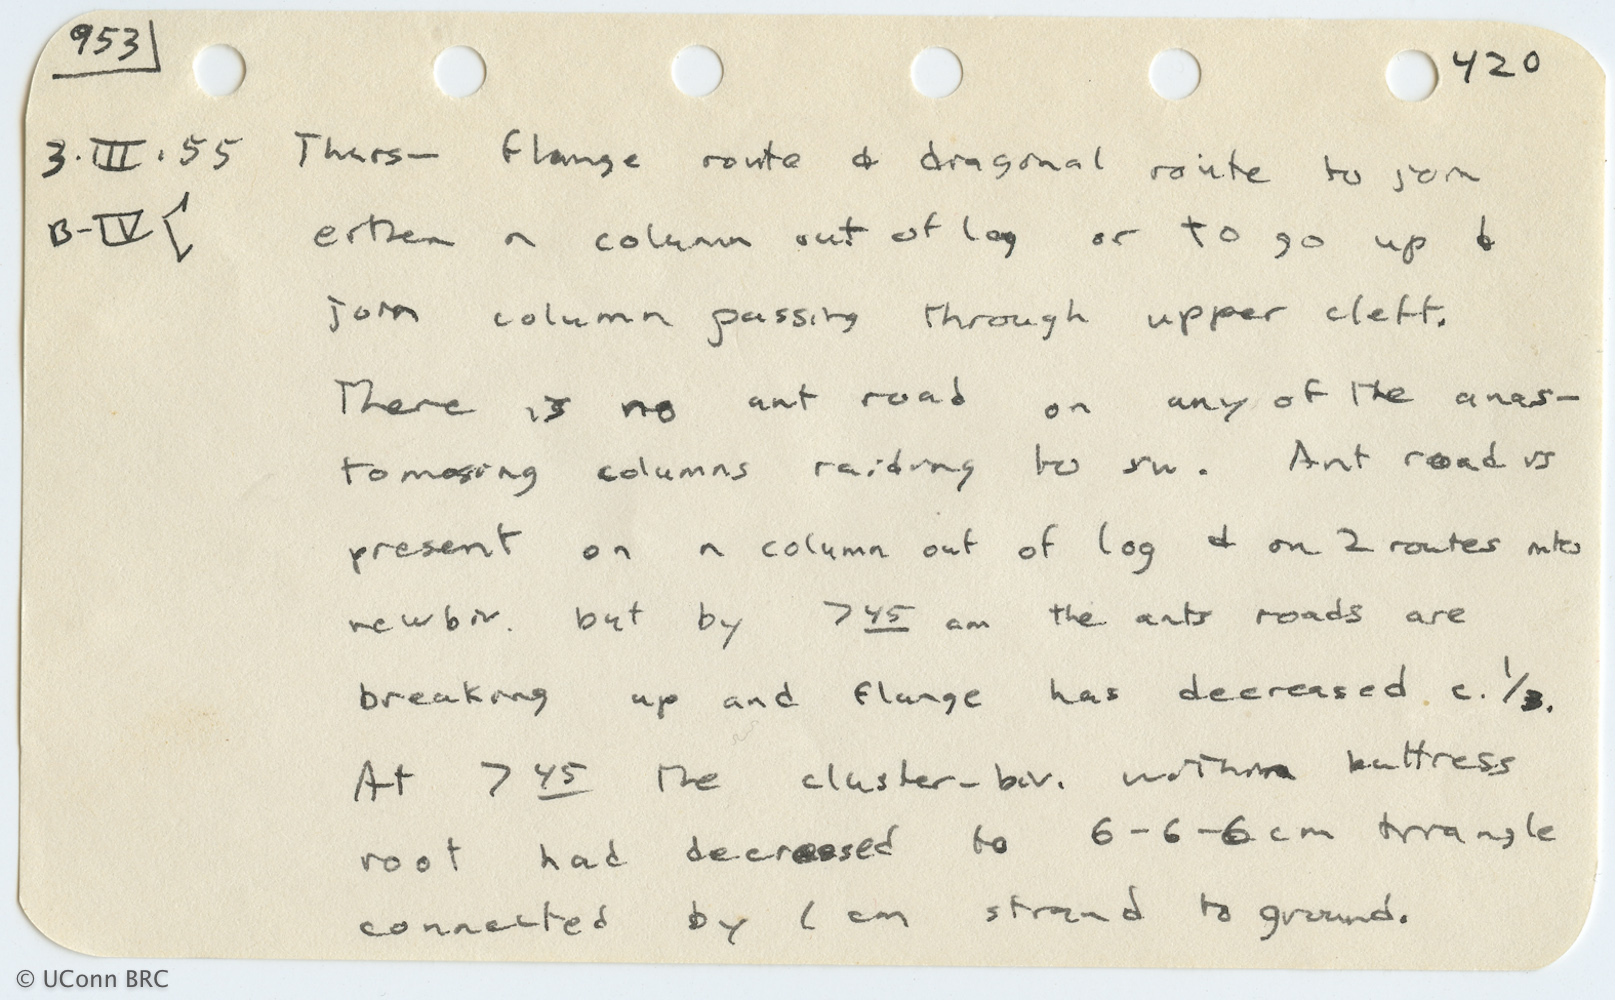 953 420
3·III·55 Thurs— flange route & diagonal route to join
B-IV either n column out of log or to go up &
join column passing through upper cleft.
There is no ant road on any of the anas-
tomosing columns raiding to sw. Ant road is
present on n column out of log & on 2 routes into
new biv. but by 745 am the ants roads are
breaking up and flange has decreased c. 1/3.
At 745 the cluster-biv. within buttress
root had decreased to 6-6-6 cm triangle
connected by 1 cm strand to ground.
© UConn BRC